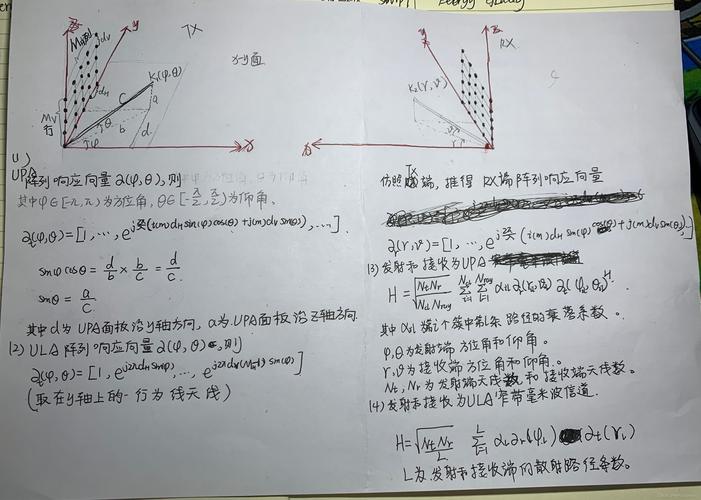 z
y
TX
MH列
dv
x-y面
Kt(φ,θ)
C
a
dH
MV
行
θ
b
d
φ
x
(1)
UPA
阵列响应向量 a(φ,θ),则
其中 φ∈[-π,π) 为方位角, θ∈[-π/2,π/2) 为仰角.
at(φ,θ)=[1,…,e^{j2π/λ(i(m)dH sin(φ)cos(θ)+j(m)dv sin(θ))},…].
sinφ cosθ = d/b × b/c = d/c.
sinθ = a/c
其中 d 为 UPA面板沿y轴方向, a为UPA面板沿Z轴方向.
(2) ULA 阵列响应向量 a(φ,θ) ,则
at(φ,θ)=[1, e^{j2πdH sin(φ)},…, e^{j2πd(MH-1)sin(φ)}]
(取在y轴上的一行为线天线)
y
z
RX
Kr(γ,ϑ)
x
仿照TX端,推得 RX端阵列响应向量
ar(γ,ϑ)=[1,…,e^{j2π/λ(i(m)dH sin(φ)cos(θ)+j(m)dv sin(θ))},]
(3)发射和接收为UPA
H=√(NtNr/(Ncl Nray)) Σ_{i=1}^{Ncl} Σ_{l=1}^{Nray} αil ar(γil,ϑil) at(φil,θil)^H.
其中 αil 第i个簇中第l条路径的衰落系数。
φ,θ为发射端方位角和仰角。
γ,ϑ为接收端方位角和仰角。
Nt,Nr为发射端天线数和接收端天线数。
(4)发射和接收为ULA窄带毫米波信道.
H=√(NtNr/L) Σ_{l=1}^{L} αl ar(φl) at(γl)
L为发射和接收端的散射路径条数。